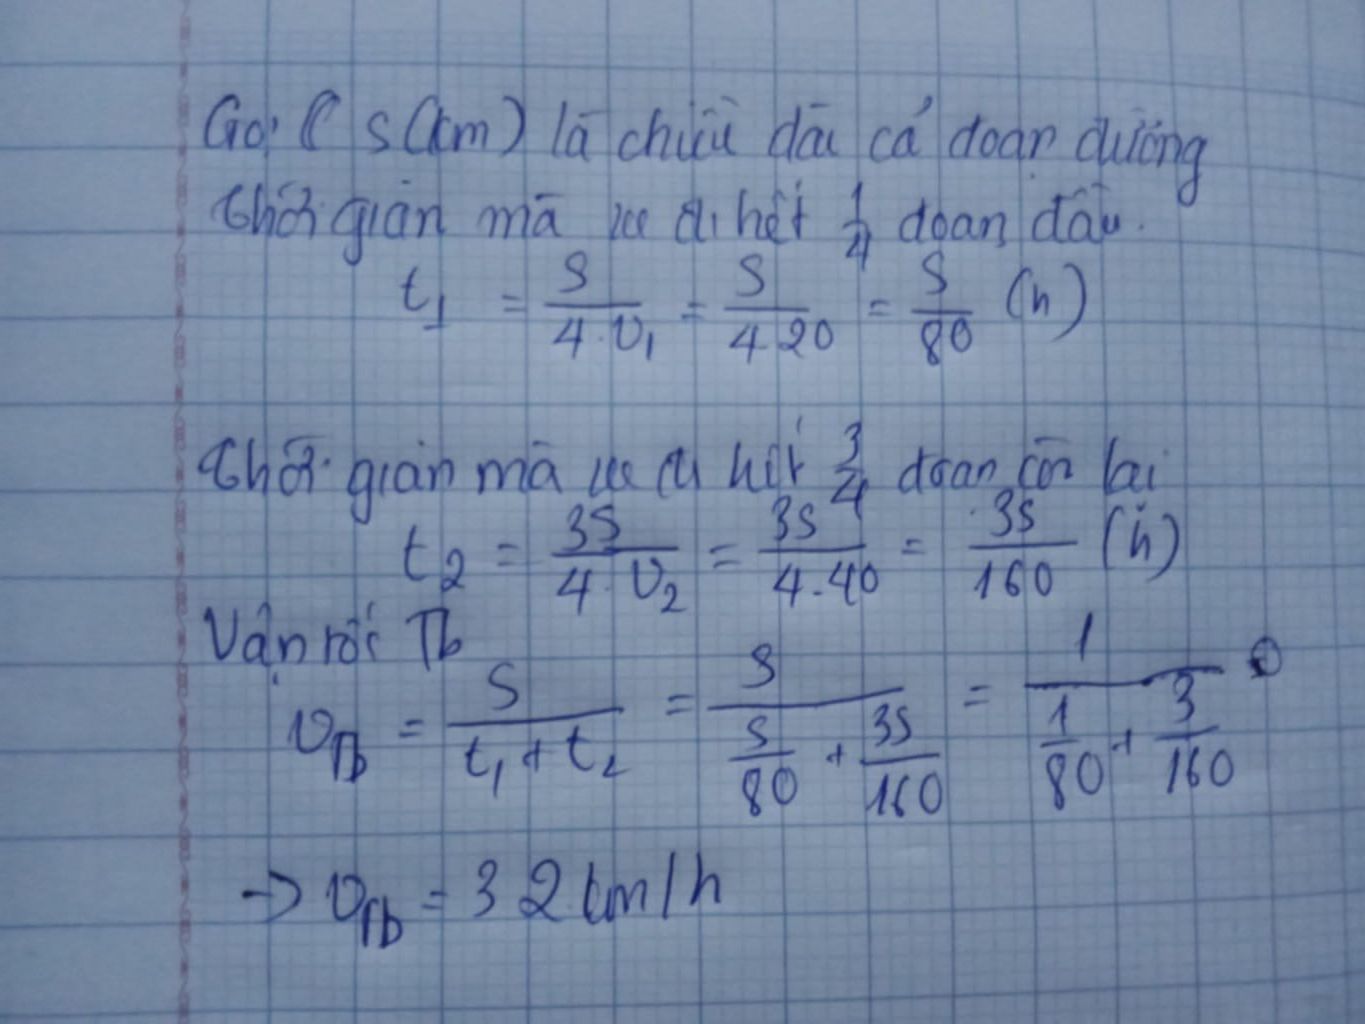 Gọi S(km) là chiều dài cả đoạn đường
Thời gian mà xe đi hết 1/4 đoạn đầu.
t₁ = S/(4.v₁) = S/(4.20) = S/80 (h)
Thời gian mà xe đi hết 3/4 đoạn còn lại
t₂ = 3S/(4.v₂) = 3S/(4.40) = 3S/160 (h)
Vận tốc Tb
v_Tb = S/(t₁+t₂) = S/(S/80 + 3S/160) = 1/(1/80 + 3/160)
→ v_Tb = 32 km/h